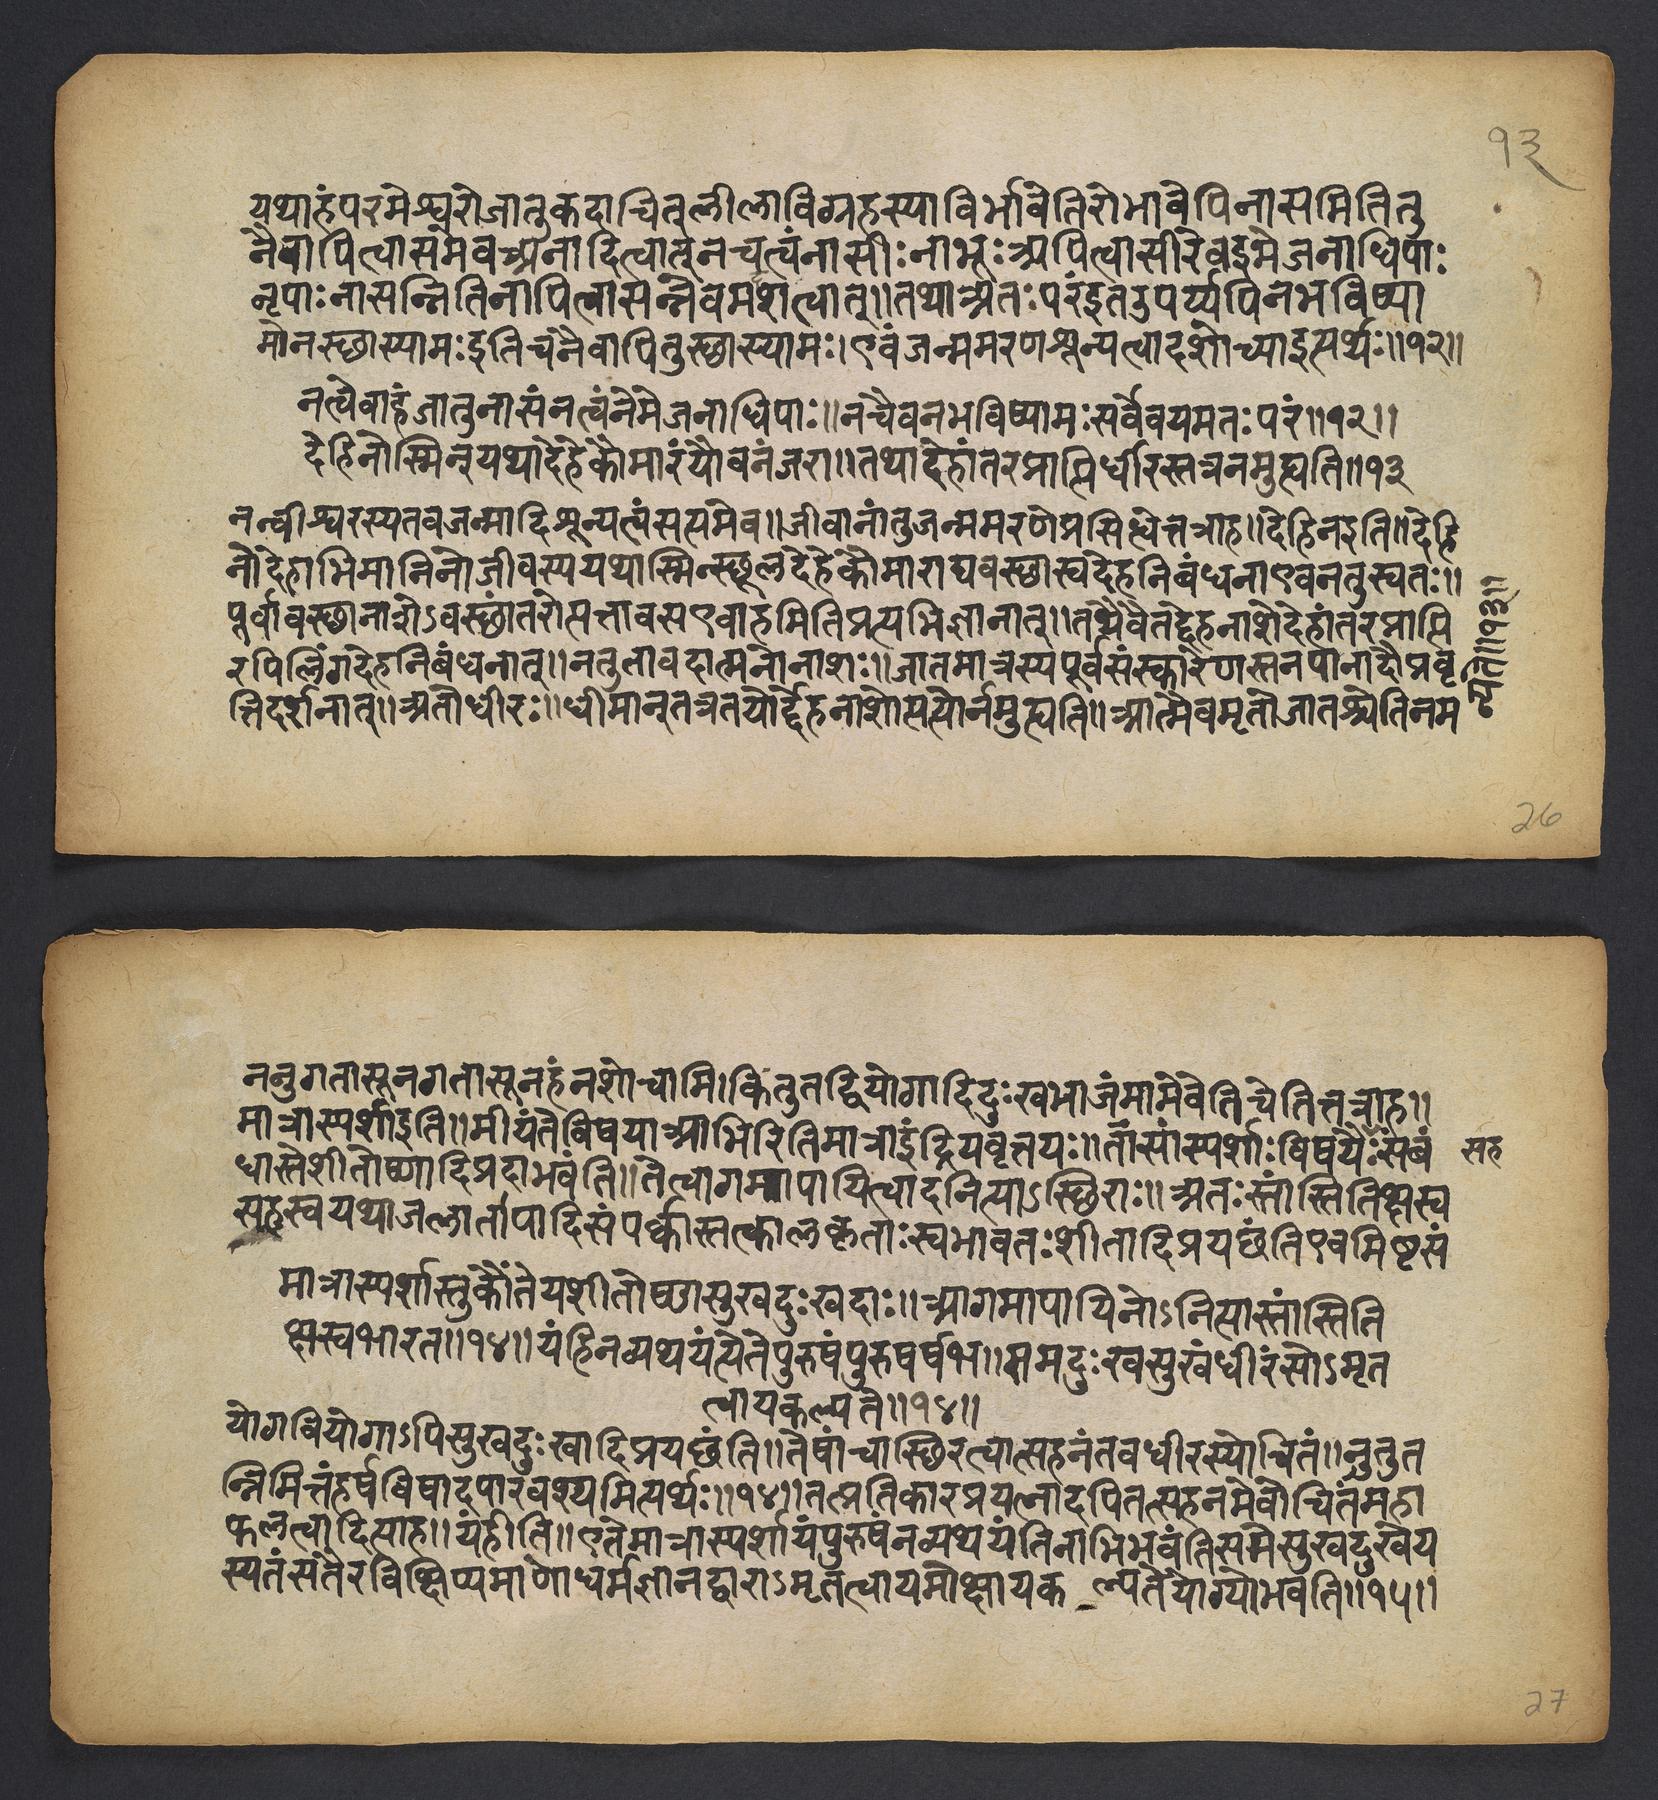 १३
यथाहंपरमेश्वरोजातुकदाचित्लीलाविग्रहस्याविर्भावेतिरोभावेपिनासमितितु
नैवापित्वासमेवअनादित्वात्नचत्वंनासीःनाभूःअपित्वासीरेवइमेजनाधिपाः
नृपाःनासन्नितिनापित्वासन्नेवमंशत्वात्॥तथाअतःपरंइतउपर्य्यपिनभविष्या
मोनस्छास्यामःइतिचनैवापितुस्छास्यामः।एवंजन्ममरणशून्यत्वादशोच्याइत्यर्थः॥१२॥
नत्वेवाहंजातुनासंनत्वंनेमेजनाधिपाः॥नचैवनभविष्यामःसर्वेवयमतःपरं॥१२॥
देहिनोस्मिन्यथादेहेकौमारंयौवनंजरा॥तथादेहांतरप्राप्तिर्धीरस्तत्रनमुह्यति॥१३
नन्वीश्वरस्यतवजन्मादिशून्यत्वंसत्यमेव॥जीवानांतुजन्ममरणेप्रसिद्धेत्तत्राह॥देहिनइति॥देहि
नोदेहाभिमानिनोजीवस्ययथास्मिन्स्छूलदेहेकौमाराद्यवस्छास्वदेहनिबंधनाएवनतुस्वतः॥
पूर्वावस्छानाशेऽवस्छांतरोत्पत्तावसएवाहमितिप्रत्यभिज्ञानात्॥तथैवैतद्देहनाशेदेहांतरप्राप्ति
रपिलिंगदेहनिबंधनात्॥नतुतावदात्मनोनाशः॥जातमात्रस्यपूर्वसंस्कारेणस्तनपानादौप्रवृ
त्तिदर्शनात्॥अतोधीरः॥धीमान्तत्रतयोर्द्देहनाशोत्पत्योर्नमुह्यति॥आत्मैवमृतोजातश्चेतिनम
न्यते॥१३॥
26
ननुगतासूनगतासूनहंनशोचामि।किंतुतद्वियोगादिदुःखभाजंमामेवेतिचेतित्तत्राह॥
मात्रास्पर्शाइति॥मीयंतेविषयाआभिरितिमात्राइंद्रियवृत्तयः॥तासांस्पर्शाःविषयैःसंबं
सह
धास्तेशीतोष्णादिप्रदाभवंति॥तेत्वागमापायित्वादनित्याऽस्छिराः॥अतःस्तांस्तितिक्षस्व
सहस्वयथाजलातपादिसंपर्कास्तत्कालकृताःस्वभावतःशीतादिप्रयछंतिएवमिष्टसं
मात्रास्पर्शास्तुकौंतेयशीतोष्णसुखदुःखदाः॥आगमापायिनोऽनित्यास्तांस्तिति
क्षस्वभारत॥१४॥यंहिनव्यथयंत्येतेपुरुषंपुरुषर्षभ॥समदुःखसुखंधीरंसोऽमृत
त्वायकल्पते॥१४॥
योगवियोगाऽपिसुखदुःखादिप्रयछंति॥तेषांचास्छिरत्वात्सहनंतवधीरस्योचितं॥नुतुत
न्निमित्तंहर्षविषादपारवश्यमित्यर्थः॥१४॥तत्प्रतिकारप्रयत्नादपितत्सहनमेवोचितंमहा
फलत्वादित्याह॥यंहीति॥एतेमात्रास्पर्शायंपुरुषंनव्यथयंतिनाभिभवंतिसमेसुखदुखेय
स्यतंसंतैरविक्षिप्यमाणोधर्मज्ञानद्वाराऽमृतत्वायमोक्षायकल्पतेयोग्योभवति॥१५॥
27